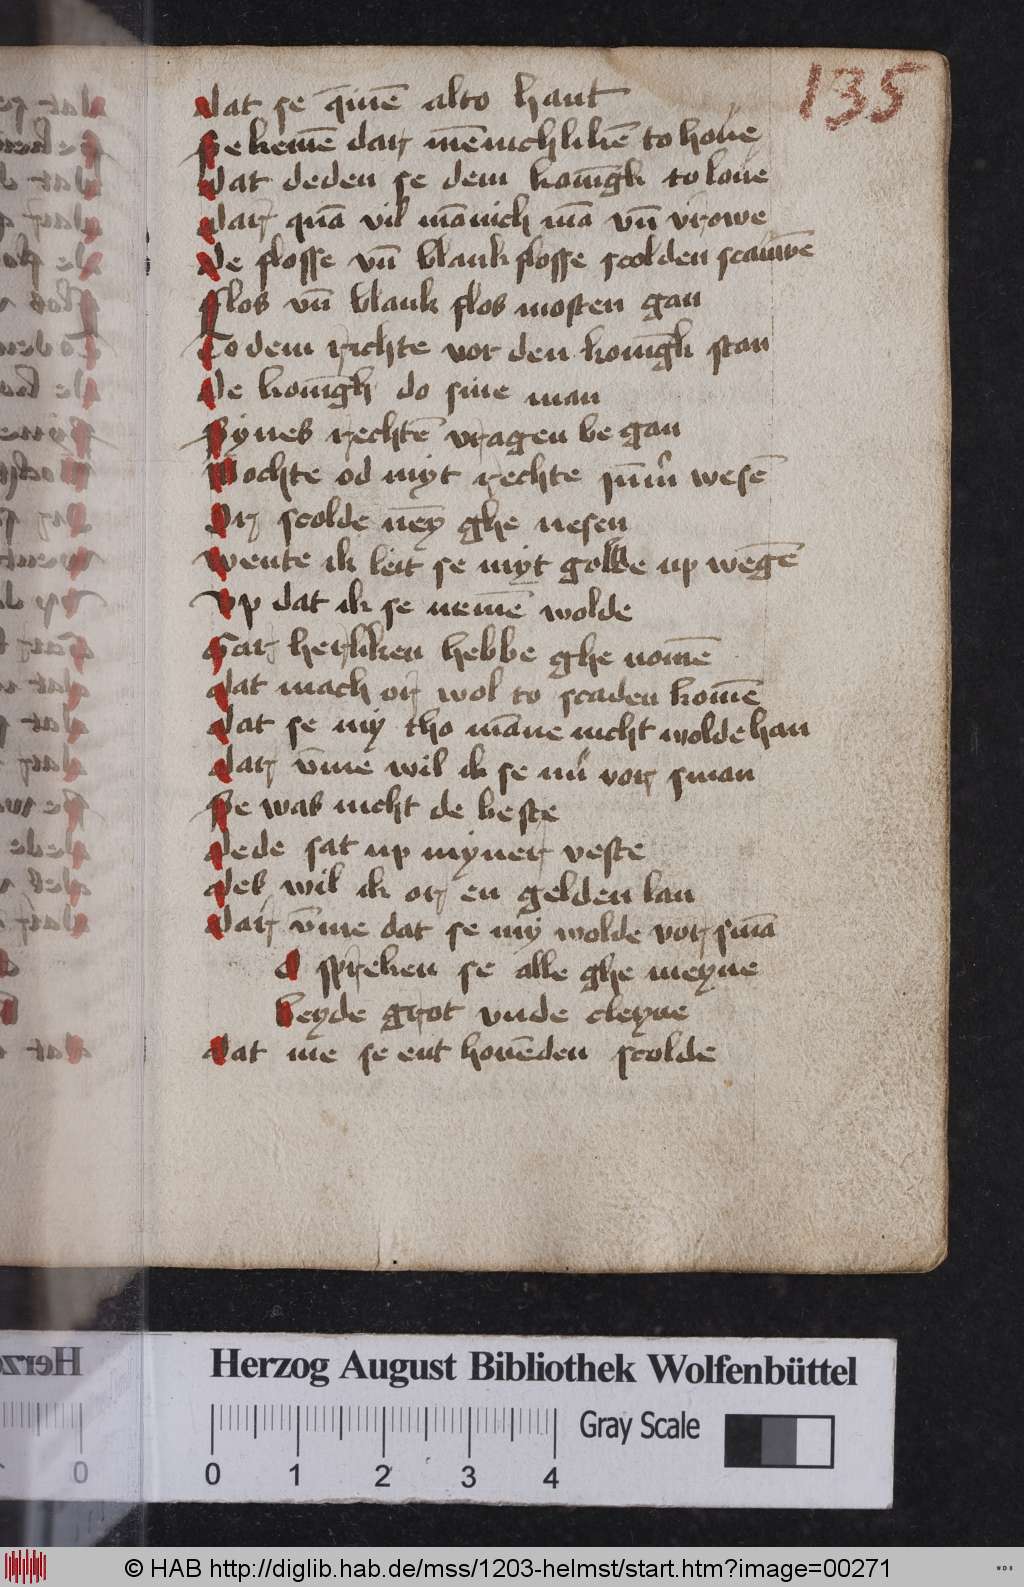 135
dat se q̄me̅ alto hant
Se keme̅ dar me̅nichlike̅ to houe
dat deden se dem konīgh to loue
dar qua̅ vil ma̅nich ma̅ vn̅ vrowe
de flosse vn̅ blankflosse scolden scauwe̅
Flos vn̅ blank flos mosten gan
To dem richte vor den konīgh stan
de konīgh do sine man
Synes rechte̅ vragen be gan
Mochte od myt rechte wese̅
Or scolde ne̅y ghe nesen
wente ik leit se myt golde up wege̅
vp dat ik se neme̅ wolde
Gar herliken hebbe ghe nome̅
dat mach or wol to scaden kome̅
dat se my tho ma̅ne nicht wolde han
dar v̅me wil ik se nu vor sman
Se was nicht de beste
dede sat up myner veste
des wil ik or en gelden lan
dar v̅me dat se my wolde vor sma̅
d spreken se alle ghe meyne
beyde grot vnde cleyne
dat me se ent houe̅den scolde
Herzog August Bibliothek Wolfenbüttel
Gray Scale
0 1 2 3 4
0
© HAB http://diglib.hab.de/mss/1203-helmst/start.htm?image=00271